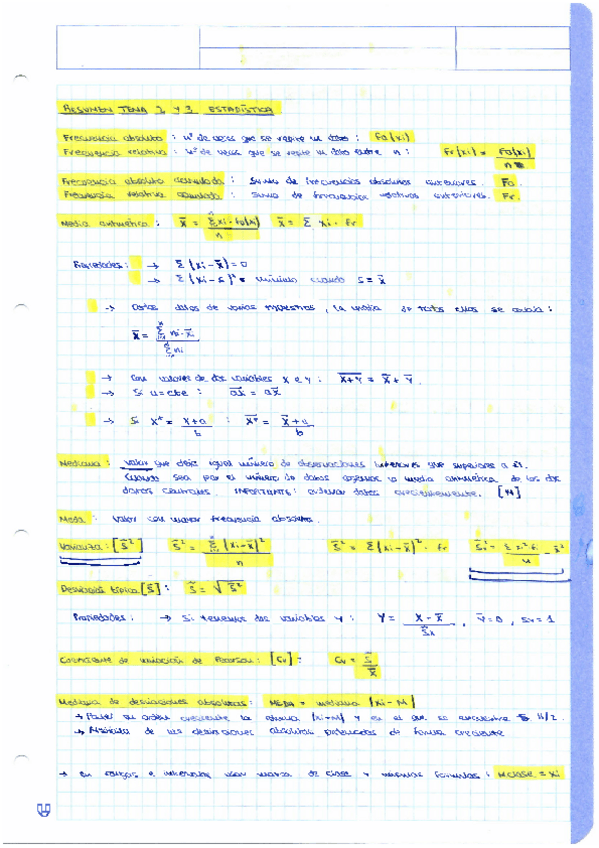 RESUMEN TEMA 2 Y 3 ESTADÍSTICA
Frecuencia absoluta : nº de veces que se repite un dato : Fa(xi)
Frecuencia relativa : nº de veces que se repite un dato entre n : Fr(xi) = Fa(xi) / n
Frecuencia absoluta acumulada : suma de frecuencias absolutas anteriores. Fa.
Frecuencia relativa acumulada : suma de frecuencias relativas anteriores. Fr.
Media aritmética : x̄ = Σ xi · fa(xi) / n x̄ = Σ xi · fr
Propiedades : → Σ (xi - x̄) = 0
→ Σ (xi - s)² = mínimo cuando s = x̄
→ datos de varias muestras, la media de todas ellas se :
x̄ = Σ ni · x̄i / Σ ni
→ Con valores de dos variables X e Y : X+Y = X̄ + Ȳ.
→ Si a = cte : ax = ax̄
→ Si X* = X+a / b : X̄* = X̄+a / b
Mediana : valor que deja igual número de observaciones inferiores que superiores a él.
Cuando sea par el número de datos cogemos la media aritmética de los dos
datos centrales. IMPORTANTE: ordenar datos crecientemente. [M]
Moda : valor con mayor frecuencia absoluta.
Varianza : [S²] S² = Σ (xi - x̄)² / n S² = Σ (xi - x̄)² · fr
Desviación típica [S] : S = √S²
Propiedades : → Si tenemos dos variables Y : Y = X - X̄ / Sx , Ȳ = 0 , Sy = 1
Coeficiente de variación de Pearson : [Cv] : Cv = S / x̄
Mediana de desviaciones absolutas : MEDA = mediana |xi - M|
en orden creciente la |xi - M| y en el que se encuentre n/2.
de las desviaciones absolutas de forma creciente
→ En rangos e intervalos usar marca de clase y mismas fórmulas : M clase = xi